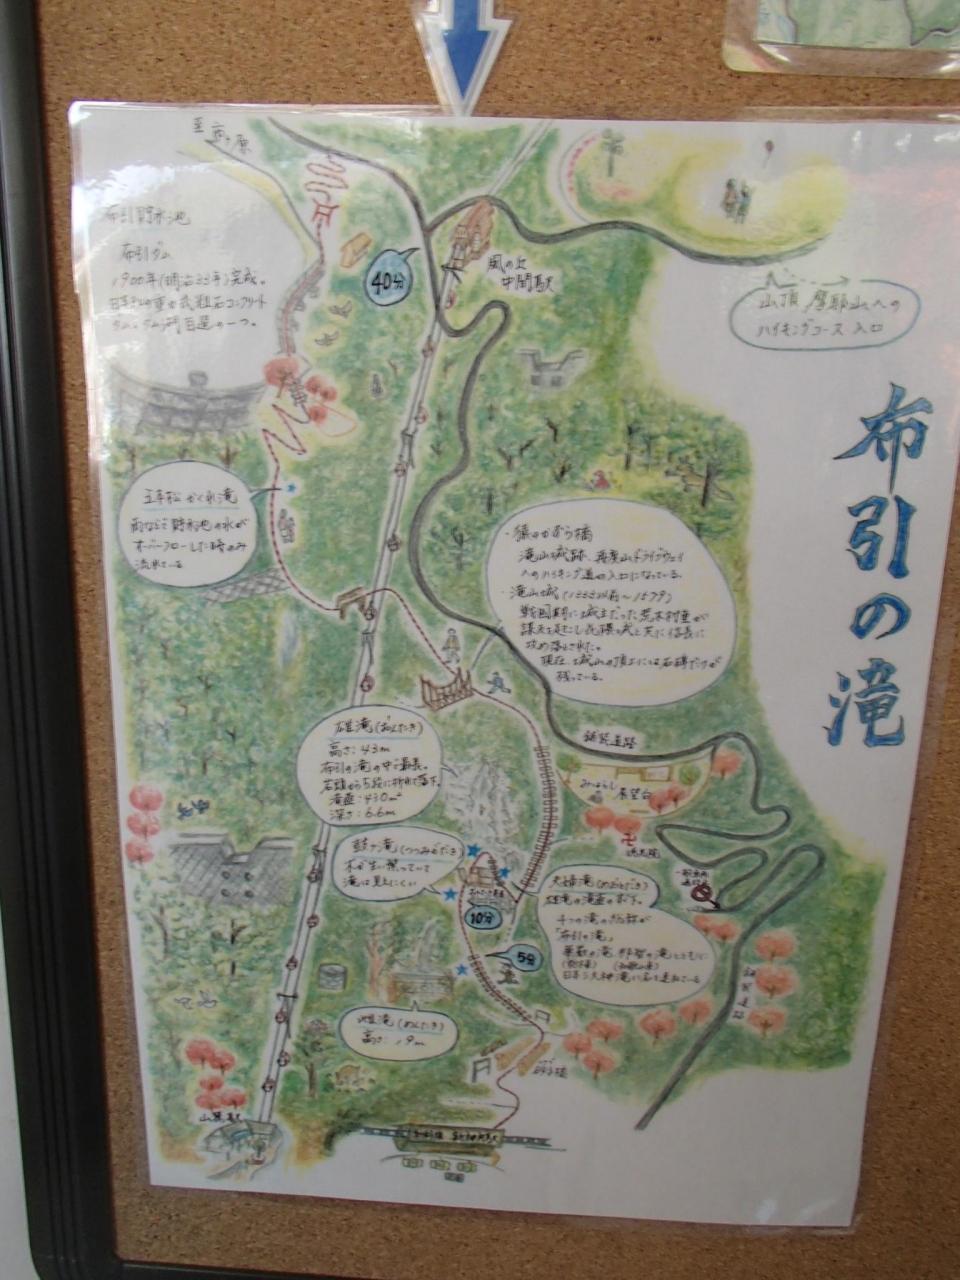 至 市ヶ原
布引貯水池
布引ダム
1900年(明治33年)完成。
日本最初の重力式粗石コンクリート
ダム。ダム湖百選の一つ。
40分
風の丘
中間駅
山頂、摩耶山への
ハイキングコース 入口
布引の滝
五本松かくれ滝
雨などで貯水池の水が
オーバーフローした時のみ
流れている
・猿のかずら橋
滝山城跡、再度山ドライブウェイ
へのハイキング道の入口になっている。
・滝山城(1333以前〜1579)
戦国期に城主だった荒木村重が
謀反を起こし花隈城と共に信長に
攻め落とされた。
現在、城山の頂上には石碑だけが
残っている。
雄滝(おんたき)
高さ:43m
布引の滝の中で最長。
滝壺:430m²
深さ:6.6m
鼓ヶ滝(つつみがだき)
木が生い茂っていて
滝は見えにくい
10分
5分
みはらし
展望台
夫婦滝(めおとだき)
雄滝の滝壺のすぐ下。
4つの滝の総称が
「布引の滝」
華厳の滝、那智の滝とともに
(栃木県) (和歌山県)
日本三大神滝に
雌滝(めんたき)
高さ:19m
砂子橋
山麓駅
新幹線 新神戸駅